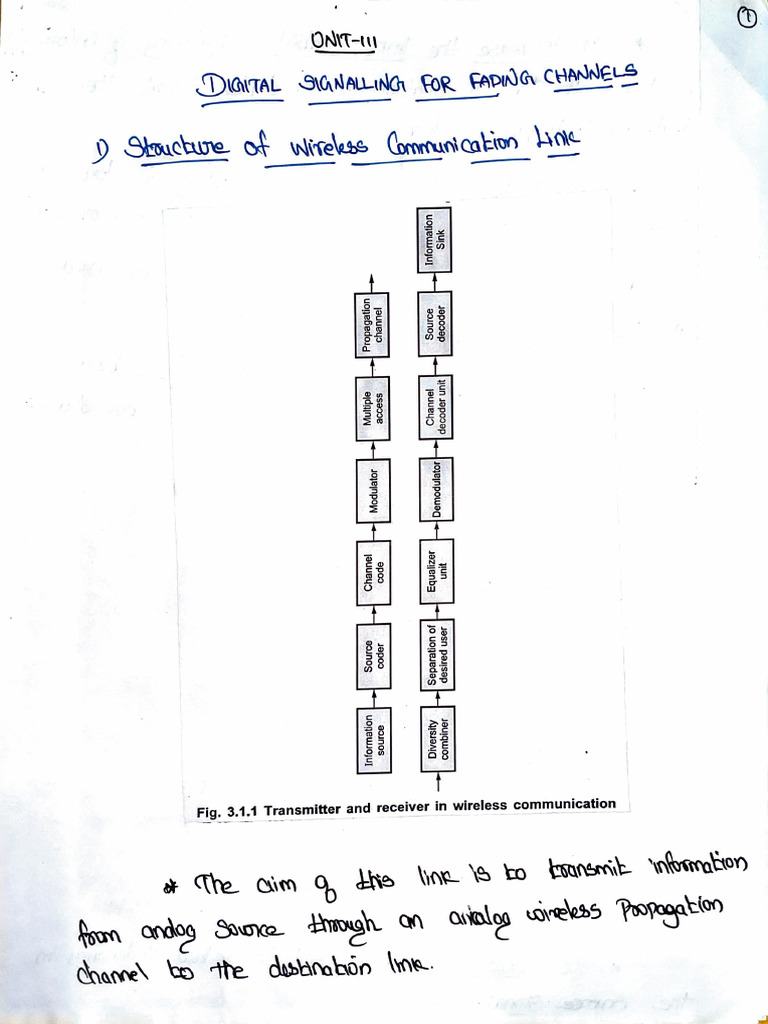 1
UNIT-III
DIGITAL SIGNALLING FOR FADING CHANNELS
1) Structure of Wireless Communication Link
Information
source
Source
coder
Channel
code
Modulator
Multiple
access
Propagation
channel
Diversity
combiner
Separation of
desired user
Equalizer
unit
Demodulator
Channel
decoder unit
Source
decoder
Information
Sink
Fig. 3.1.1 Transmitter and receiver in wireless communication
* The aim of this link is to transmit information
from analog source through an analog wireless Propagation
channel to the destination link.